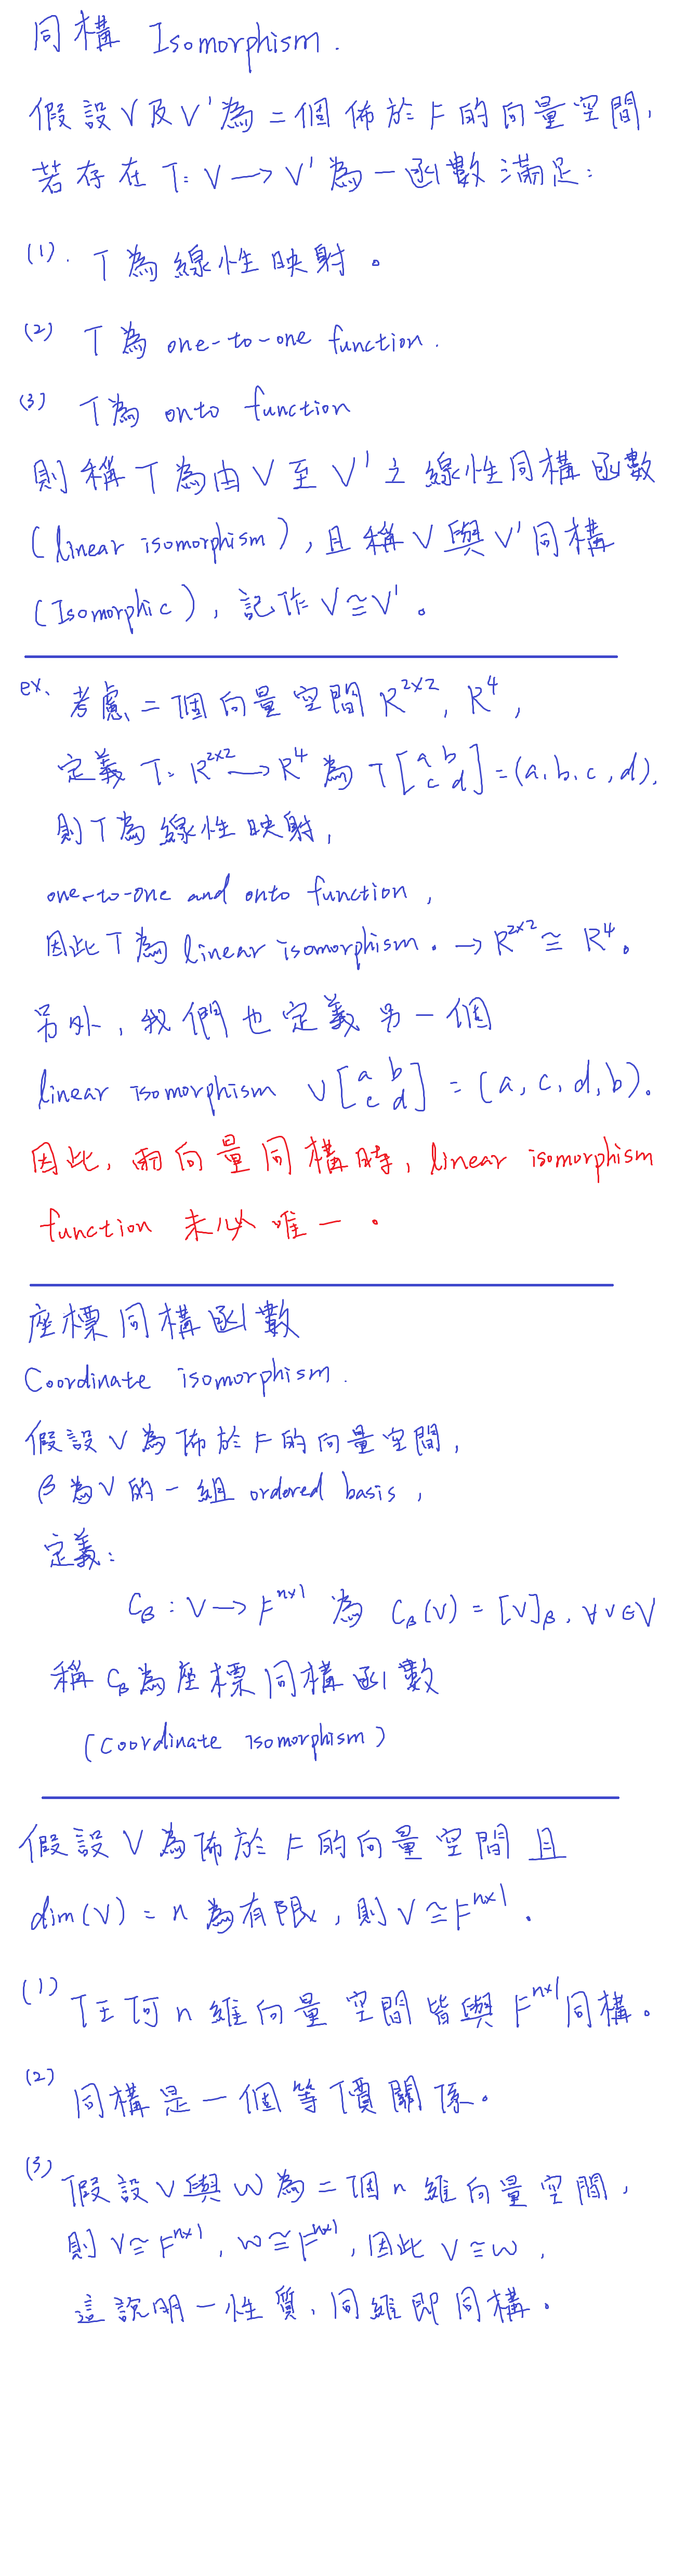 同構 Isomorphism.
假設V及V'為二個佈於F的向量空間,
若存在T: V→V'為一函數滿足:
(1). T為線性映射。
(2) T為 one-to-one function.
(3) T為 onto function
則稱T為由V至V'之線性同構函數
(linear isomorphism), 且稱V與V'同構
(Isomorphic), 記作V≅V'。
ex. 考慮二個向量空間 R^{2×2}, R^4,
定義 T: R^{2×2}→R^4 為 T[a b; c d]=(a, b, c, d).
則T為線性映射,
one-to-one and onto function,
因此T為linear isomorphism. → R^{2×2}≅R^4。
另外, 我們也定義另一個
linear isomorphism U[a b; c d] = (a, c, d, b).
因此, 兩向量同構時, linear isomorphism
function 未必唯一。
座標同構函數
Coordinate isomorphism.
假設V為佈於F的向量空間,
β為V的一組 ordered basis,
定義:
C_β : V→F^{n×1} 為 C_β(v) = [v]_β, ∀v∈V
稱C_β為座標同構函數
(Coordinate isomorphism)
假設V為佈於F的向量空間且
dim(V) = n 為有限, 則V≅F^{n×1}.
(1) 任何n維向量空間皆與F^{n×1}同構。
(2) 同構是一個等價關係。
(3) 假設V與W為二個n維向量空間,
則V≅F^{n×1}, W≅F^{n×1}, 因此V≅W,
這說明一性質, 同維即同構。